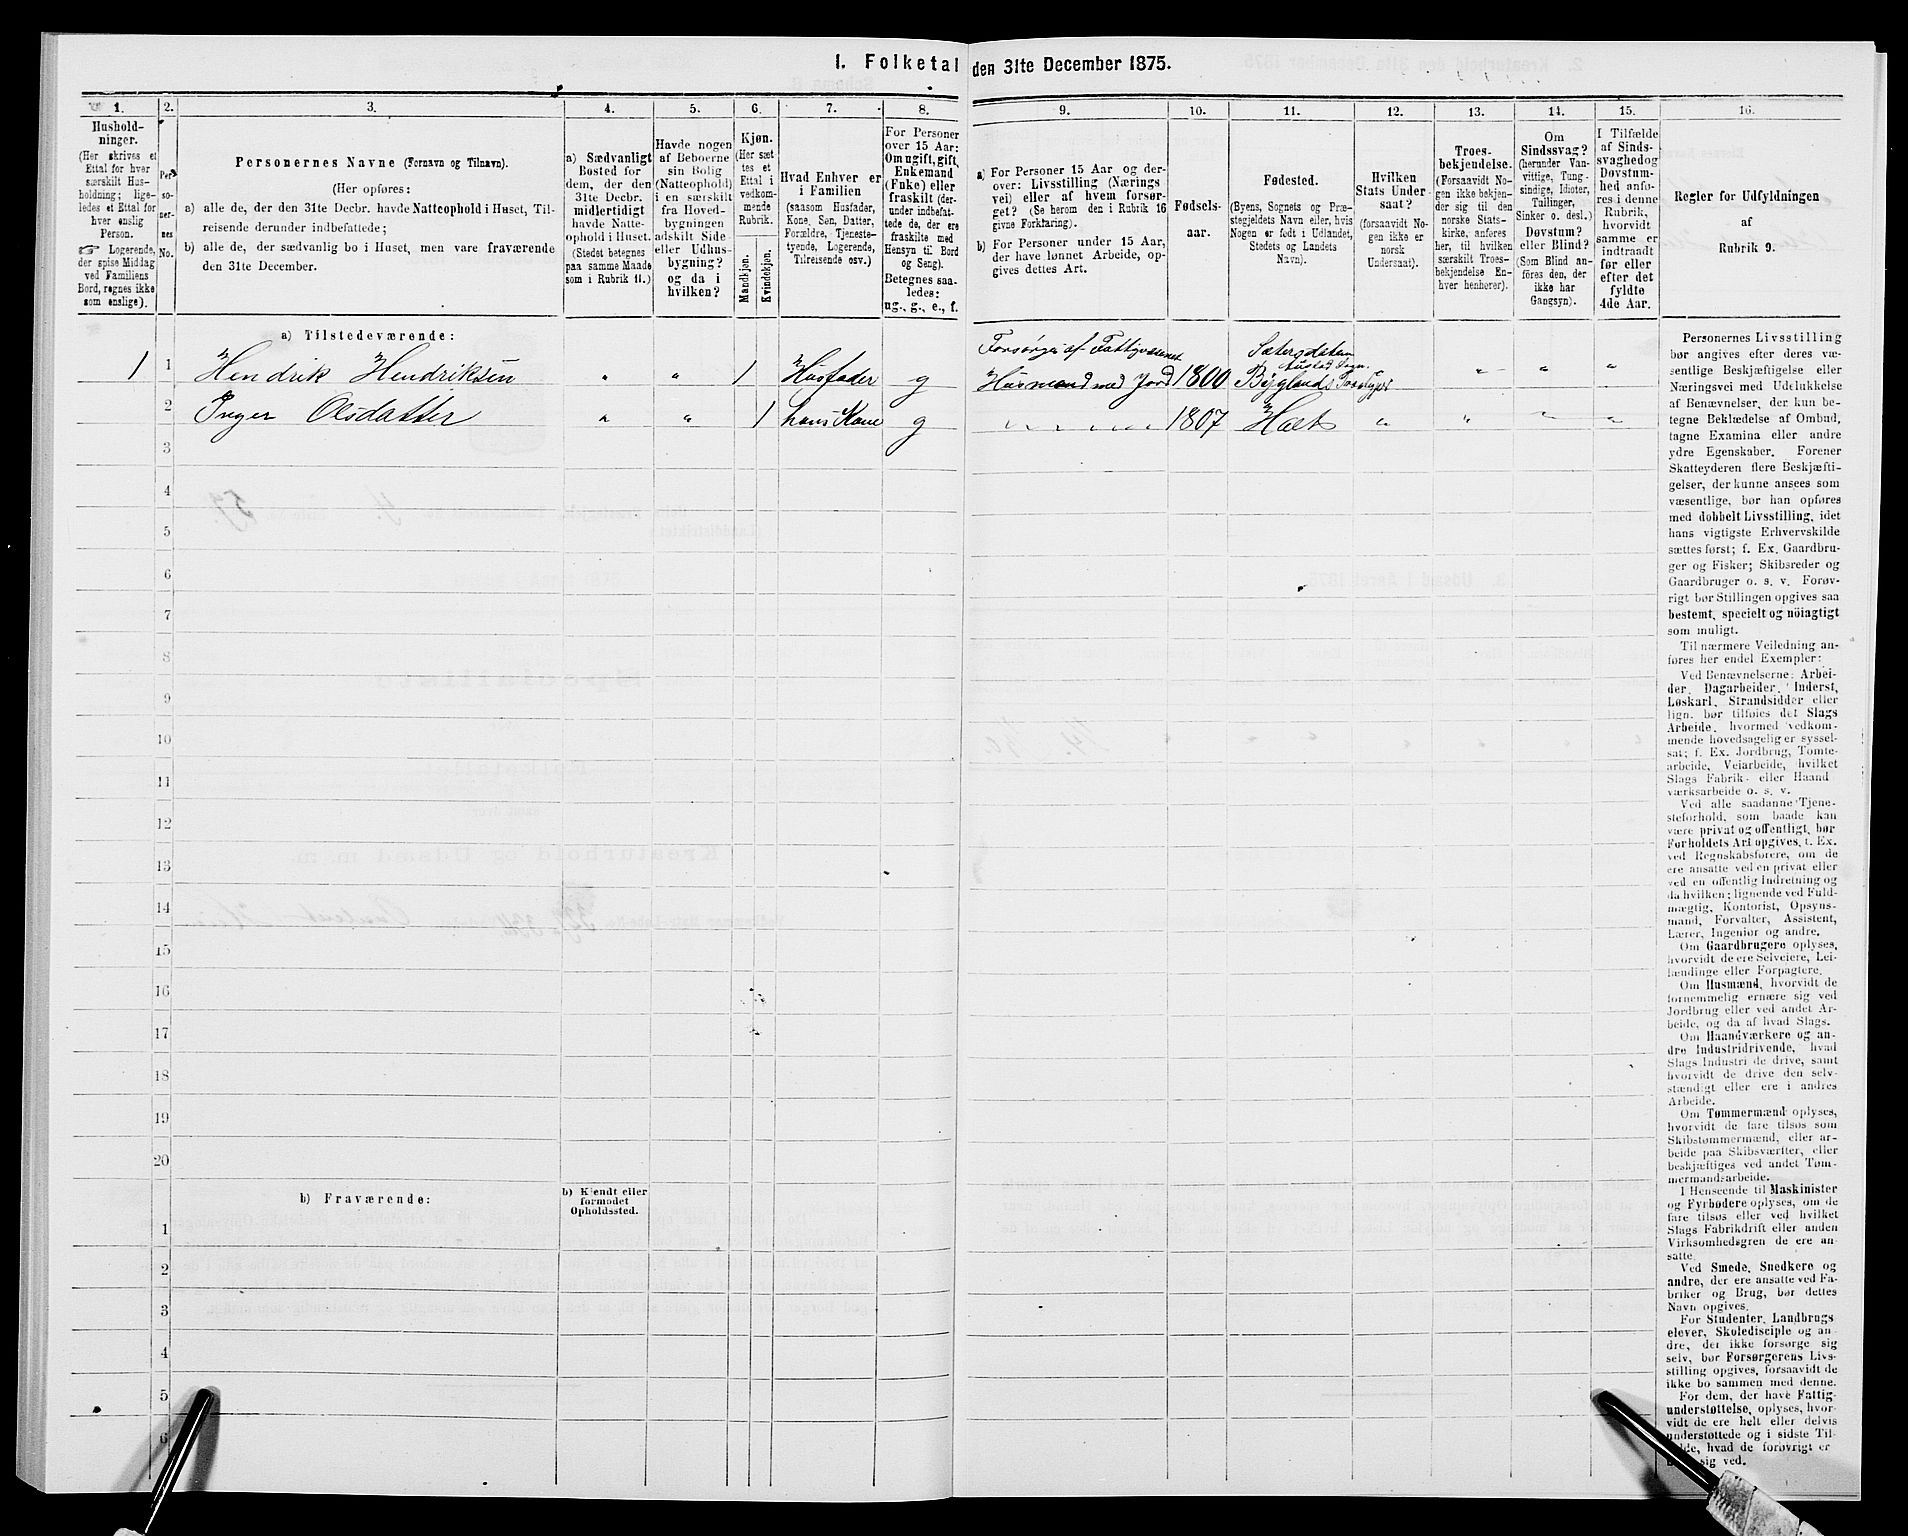 1. Folketal den 31te December 1875.
1. 2. 3. 4. 5. 6. 7. 8. 9. 10. 11. 12. 13. 14. 15. 16.
Hushold-
ninger.
(Her skrives et
Ettal for hver
særskilt Hus-
holdning; lige-
ledes et Ettal for
hver enslig
Person.
☞ Logerende,
der spise Middag
ved Familiens
Bord, regnes ikke
som enslige).
Per-
so-
ner-
nes
No.
Personernes Navne (Fornavn og Tilnavn).
(Her opføres:
a) alle de, der den 31te Decbr. havde Natteophold i Huset, Til-
reisende derunder indbefattede;
b) alle de, der sædvanlig bo i Huset, men vare fraværende
den 31te December.
a) Sædvanligt
Bosted for
dem, der den
31te Decbr.
midlertidigt
havde Natte-
ophold i Huset.
(Stedet betegnes
paa samme Maade
som i Rubrik 11.)
Havde nogen
af Beboerne
sin Bolig
(Natteophold)
i en særskilt
fra Hoved-
bygningen
adskilt Side
eller Udhus-
bygning?
og da i
hvilken?
Kjøn.
(Her sæt-
tes et
Ettal i
vedkom-
mende
Rubrik.
Mandkjøn.
Kvindekjøn.
Hvad Enhver er
i Familien
(saasom Husfader,
Kone, Søn, Datter,
Forældre, Tjeneste-
tyende, Logerende,
Tilreisende osv.)
For Personer
over 15 Aar:
Om ugift, gift,
Enkemand
(Enke) eller
fraskilt (der-
under indbefat-
tede de, der ere
fraskilte med
Hensyn til Bord
og Seng).
Betegnes saa-
ledes:
ug., g., e., f.
a) For Personer 15 Aar og der-
over: Livsstilling (Nærings-
vei) eller af hvem forsør-
get? (Se herom den i Rubrik 16
givne Forklaring).
b) For Personer under 15 Aar,
der have lønnet Arbeide, op-
gives dettes Art.
Fødsels-
aar.
Fødested.
(Byens, Sognets og Præ-
stegjeldets Navn eller, hvis
Nogen er født i Udlandet,
Stedets og Landets
Navn).
Hvilken
Stats Under-
saat?
(forsaavidt No-
gen ikke er
norsk
Undersaat).
Troes-
bekjendelse.
(Forsaavidt No-
gen ikke bekjen-
der sig til den
norske Stats-
kirke, anføres
her, til hvilken
særskilt Troes-
bekjendelse En-
hver henhører).
Om
Sindssvag?
(herunder Van-
vittige, Tung-
sindige, Idioter,
Tullinger,
Sinker o. desl.)
Døvstum?
eller Blind?
(Som Blind an-
føres den, der
ikke har
Gangsyn).
I Tilfælde
af Sinds-
svaghed og
Døvstum-
hed anfø-
res i denne
Rubrik,
hvorvidt
samme er
indtraadt
før eller
efter det
fyldte
4de Aar.
Regler for Udfyldningen
af
Rubrik 9.
a) Tilstedeværende:
Forsørges af Fattigvæsenet Sætersdalen
Austad Sogn.
1 1 Hendrik Hendriksen " " 1 Husfader g Husmand med Jord 1800 Byglands Præstegjel " " "
2 Inger Olsdatter " " 1 hans Kone g " " " " 1807 Holt " " " "
3
4
5
6
7
8
9
10
11
12
13
14
15
16
17
18
19
20
b) Fraværende:
b) Kjendt eller
formodet
Opholdssted.
1
2
3
4
5
6
Personernes Livsstilling
bør angives efter deres væ-
sentlige Beskjæftigelse eller
Næringsvei med Udelukkelse
af Benævnelser, der kun be-
tegne Beklædelse af Ombud,
tagne Examina eller andre
ydre Egenskaber. Forener
Skatteyderen flere Beskjæfti-
gelser, der kunne ansees som
væsentlige, bør han opføres
med dobbelt Livsstilling, idet
hans vigtigste Erhvervskilde
sættes først; f. Ex. Gaardbru-
ger og Fisker; Skibsreder og
Gaardbruger o. s. v. Forøv-
rigt bør Stillingen opgives saa
bestemt, specielt og nöiagtigt
som muligt.
Til nærmere Veiledning an-
føres her endel Exempler:
Ved Benævnelserne: Arbei-
der, Dagarbeider, Inderst,
Løskarl, Strandsidder eller
lign. bør tilføies det Slags
Arbeide, hvormed vedkom-
mende hovedsagelig er syssel-
sat; f. Ex. Jordbrug, Tomte-
arbeide, Veiarbeide, hvilket
Slags Fabrik- eller Haand-
værksarbeide o. s. v.
Ved alle saadanne Tjene-
steforhold, som baade kan
være privat og offentligt, bør
Forholdets Art opgives, f. Ex.
ved Regnskabsførere, om de
ere ansatte ved en privat eller
ved en offentlig Indretning og
da hvilken; lignende ved Fuld-
mægtig, Kontorist, Opsyns-
mand, Forvalter, Assistent,
Lærer, Ingeniør og andre.
Om Gaardbrugere oplyses,
hvorvidt de ere Selveiere, Lei-
lændinge eller Forpagtere.
Om Husmænd, hvorvidt de
fornemmelig ernære sig ved
Jordbrug eller ved andet Ar-
beide, og da af hvad Slags.
Om Haandværkere og an-
dre Industridrivende, hvad
Slags Industri de drive, samt
hvorvidt de drive den selv-
stændigt eller ere i andres
Arbeide.
Om Tømmermænd oplyses,
hvorvidt de fare tilsøs som
Skibstømmermænd, eller ar-
beide paa Skibsværfter, eller
beskjæftiges ved andet Tøm-
mermandsarbeide.
I Henseende til Maskinister
og Fyrbødere oplyses, om de
fare tilsøs eller ved hvilket
Slags Fabrikdrift eller anden
Virksomhedsgren de ere an-
satte.
Ved Smede, Snedkere og
andre, der ere ansatte ved Fa-
briker og Brug, bør dettes
Navn opgives.
For Studenter, Landbrugs-
elever, Skoledisciple og an-
dre, der ikke forsørge sig
selv, bør Forsørgerens Livs-
stilling opgives, forsaavidt de
ikke bo sammen med denne.
For dem, der have Fattig-
understøttelse, oplyses, hvor-
vidt de ere helt eller delvis
understøttede og i sidste Til-
fælde, hvad de forøvrigt er
sig ved.